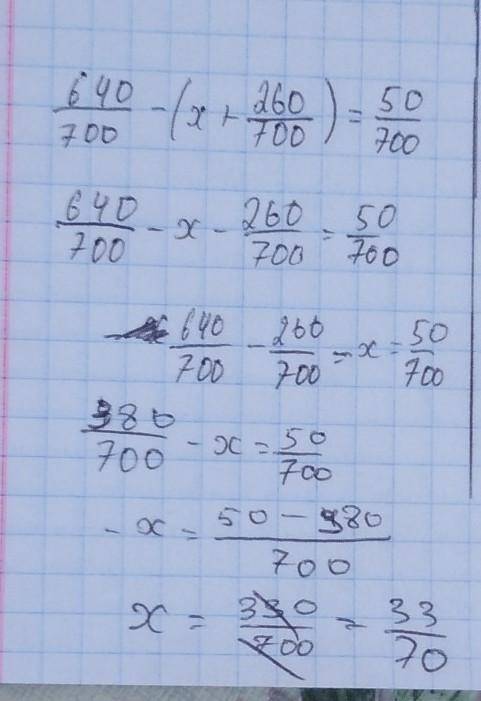 640/700 - (x + 260/700) = 50/700
640/700 - x - 260/700 = 50/700
640/700 - 260/700 - x = 50/700
380/700 - x = 50/700
- x = (50 - 380)/700
x = 330/700 = 33/70